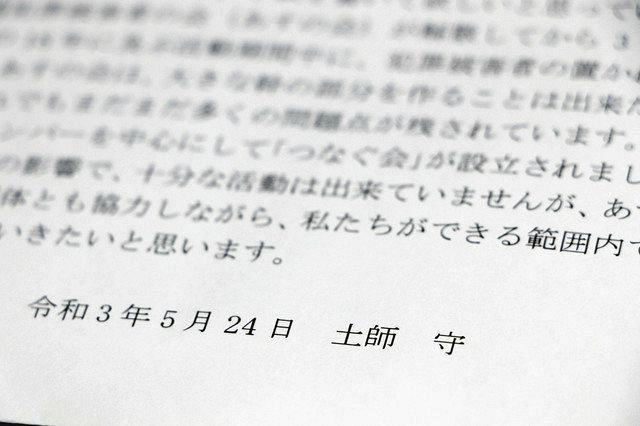 てから3
年に及ぶ活動期間中に、犯罪被害者の置か
あすの会は、大きな幹の部分を作ることは出来た
でもまだまだ多くの問題点が残されています。
ンバーを中心にして「つなぐ会」が設立されまし
の影響で、十分な活動は出来ていませんが、あす
体とも協力しながら、私たちができる範囲内で
いきたいと思います。
令和3年5月24日 土師 守